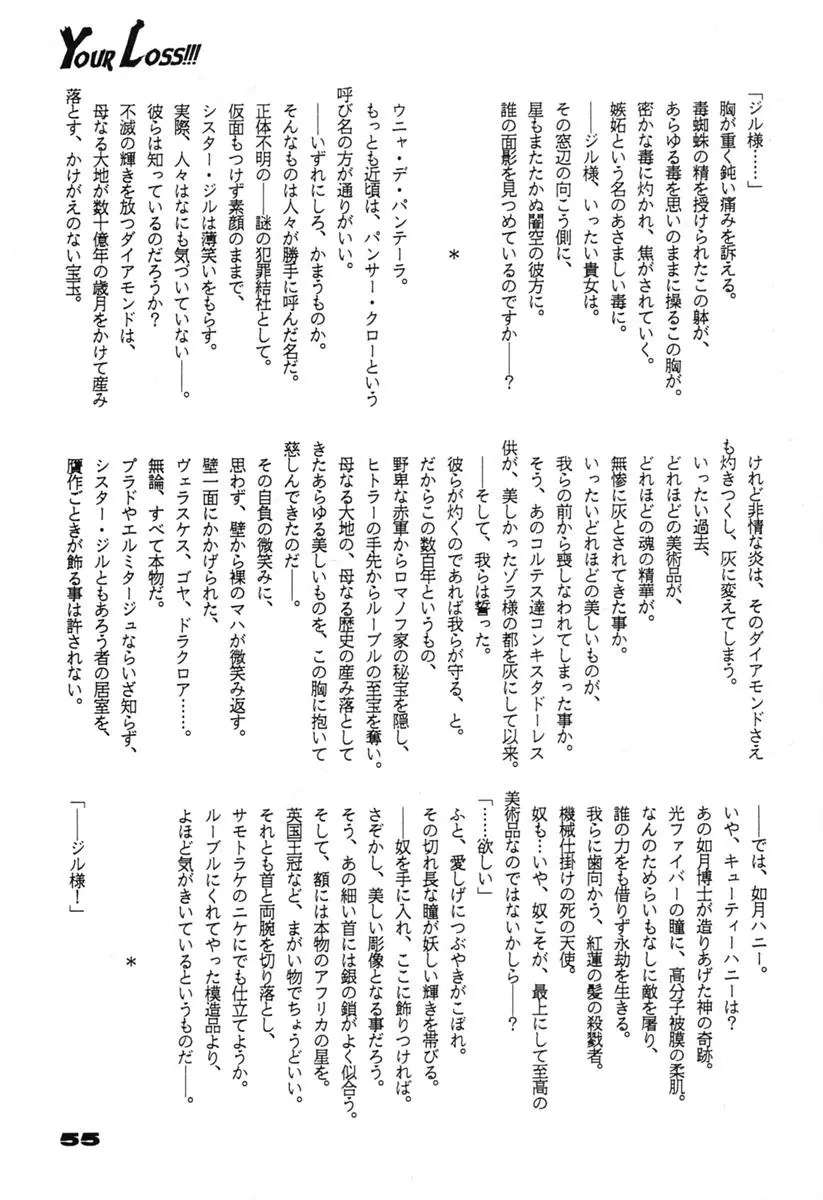 YOUR LOSS!!!
「ジル様……」
胸が重く鈍い痛みを訴える。
毒蜘蛛の精を授けられたこの躰が、
あらゆる毒を思いのままに操るこの胸が。
密かな毒に灼かれ、焦がされていく。
嫉妬という名のあさましい毒に。
――ジル様、いったい貴女は。
その窓辺の向こう側に、
星もまたたかぬ闇空の彼方に。
誰の面影を見つめているのですか――？
*
ウニャ・デ・パンテーラ。
もっとも近頃は、パンサー・クローという
呼び名の方が通りがいい。
――いずれにしろ、かまうものか。
そんなものは人々が勝手に呼んだ名だ。
正体不明の――謎の犯罪結社として。
仮面もつけず素顔のままで、
シスター・ジルは薄笑いをもらす。
実際、人々はなにも気づいていない――。
彼らは知っているのだろうか？
不滅の輝きを放つダイアモンドは、
母なる大地が数十億年の歳月をかけて産み
落とす、かけがえのない宝玉。
けれど非情な炎は、そのダイアモンドさえ
も灼きつくし、灰に変えてしまう。
いったい過去、
どれほどの美術品が、
どれほどの魂の精華が。
無惨に灰とされてきた事か。
いったいどれほどの美しいものが、
我らの前から喪しなわれてしまった事か。
そう、あのコルテス達コンキスタドーレス
供が、美しかったゾラ様の都を灰にして以来。
――そして、我らは誓った。
彼らが灼くのであれば我らが守る、と。
だからこの数百年というもの、
野卑な赤軍からロマノフ家の秘宝を隠し、
ヒトラーの手先からルーブルの至宝を奪い。
母なる大地の、母なる歴史の産み落として
きたあらゆる美しいものを、この胸に抱いて
慈しんできたのだ――。
その自負の微笑みに、
思わず、壁から裸のマハが微笑み返す。
壁一面にかかげられた、
ヴェラスケス、ゴヤ、ドラクロア……。
無論、すべて本物だ。
プラドやエルミタージュならいざ知らず、
シスター・ジルともあろう者の居室を、
贋作ごときが飾る事は許されない。
――では、如月ハニー。
いや、キューティーハニーは？
あの如月博士が造りあげた神の奇跡。
光ファイバーの瞳に、高分子被膜の柔肌。
なんのためらいもなしに敵を屠り、
誰の力をも借りず永劫を生きる。
我らに歯向かう、紅蓮の髪の殺戮者。
機械仕掛けの死の天使。
奴も…いや、奴こそが、最上にして至高の
美術品なのではないかしら――？
「……欲しい」
ふと、愛しげにつぶやきがこぼれ。
その切れ長な瞳が妖しい輝きを帯びる。
――奴を手に入れ、ここに飾りつければ。
さぞかし、美しい彫像となる事だろう。
そう、あの細い首には銀の鎖がよく似合う。
そして、額には本物のアフリカの星を。
英国王冠など、まがい物でちょうどいい。
それとも首と両腕を切り落とし、
サモトラケのニケにでも仕立てようか。
ルーブルにくれてやった模造品より、
よほど気がきいているというものだ――。
*
「――ジル様！」
55